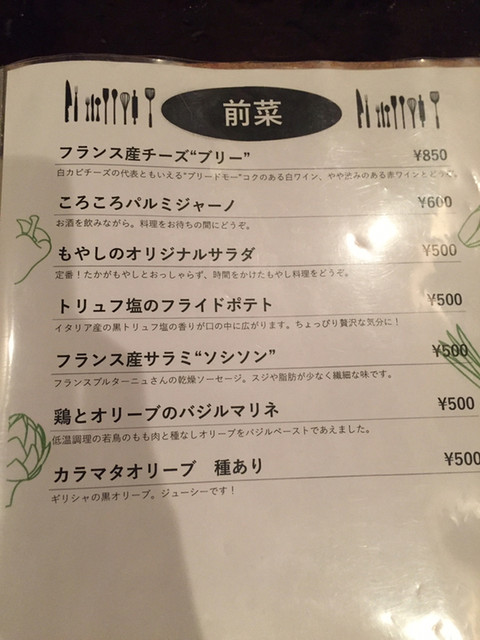 前菜
フランス産チーズ“ブリー” ¥850
白カビチーズの代表ともいえる“ブリードモー”コクのある白ワイン、やや渋みのある赤ワインとどうぞ。
ころころパルミジャーノ ¥600
お酒を飲みながら。料理をお待ちの間にどうぞ。
もやしのオリジナルサラダ ¥500
定番！たかがもやしとおっしゃらず、時間をかけたもやし料理をどうぞ。
トリュフ塩のフライドポテト ¥500
イタリア産の黒トリュフ塩の香りが口の中に広がります。ちょっぴり贅沢な気分に！
フランス産サラミ“ソシソン” ¥500
フランスブルターニュさんの乾燥ソーセージ。スジや脂肪が少なく繊細な味です。
鶏とオリーブのバジルマリネ ¥500
低温調理の若鳥のもも肉と種なしオリーブをバジルペーストであえました。
カラマタオリーブ　種あり ¥500
ギリシャの黒オリーブ。ジューシーです！